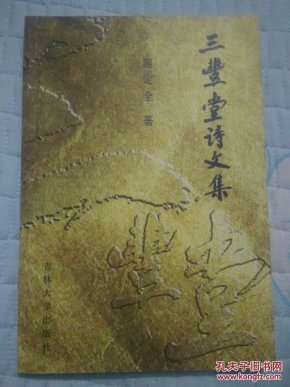 三豐堂诗文集
定全 著
吉林大学出版社
豐
孔夫子旧书网